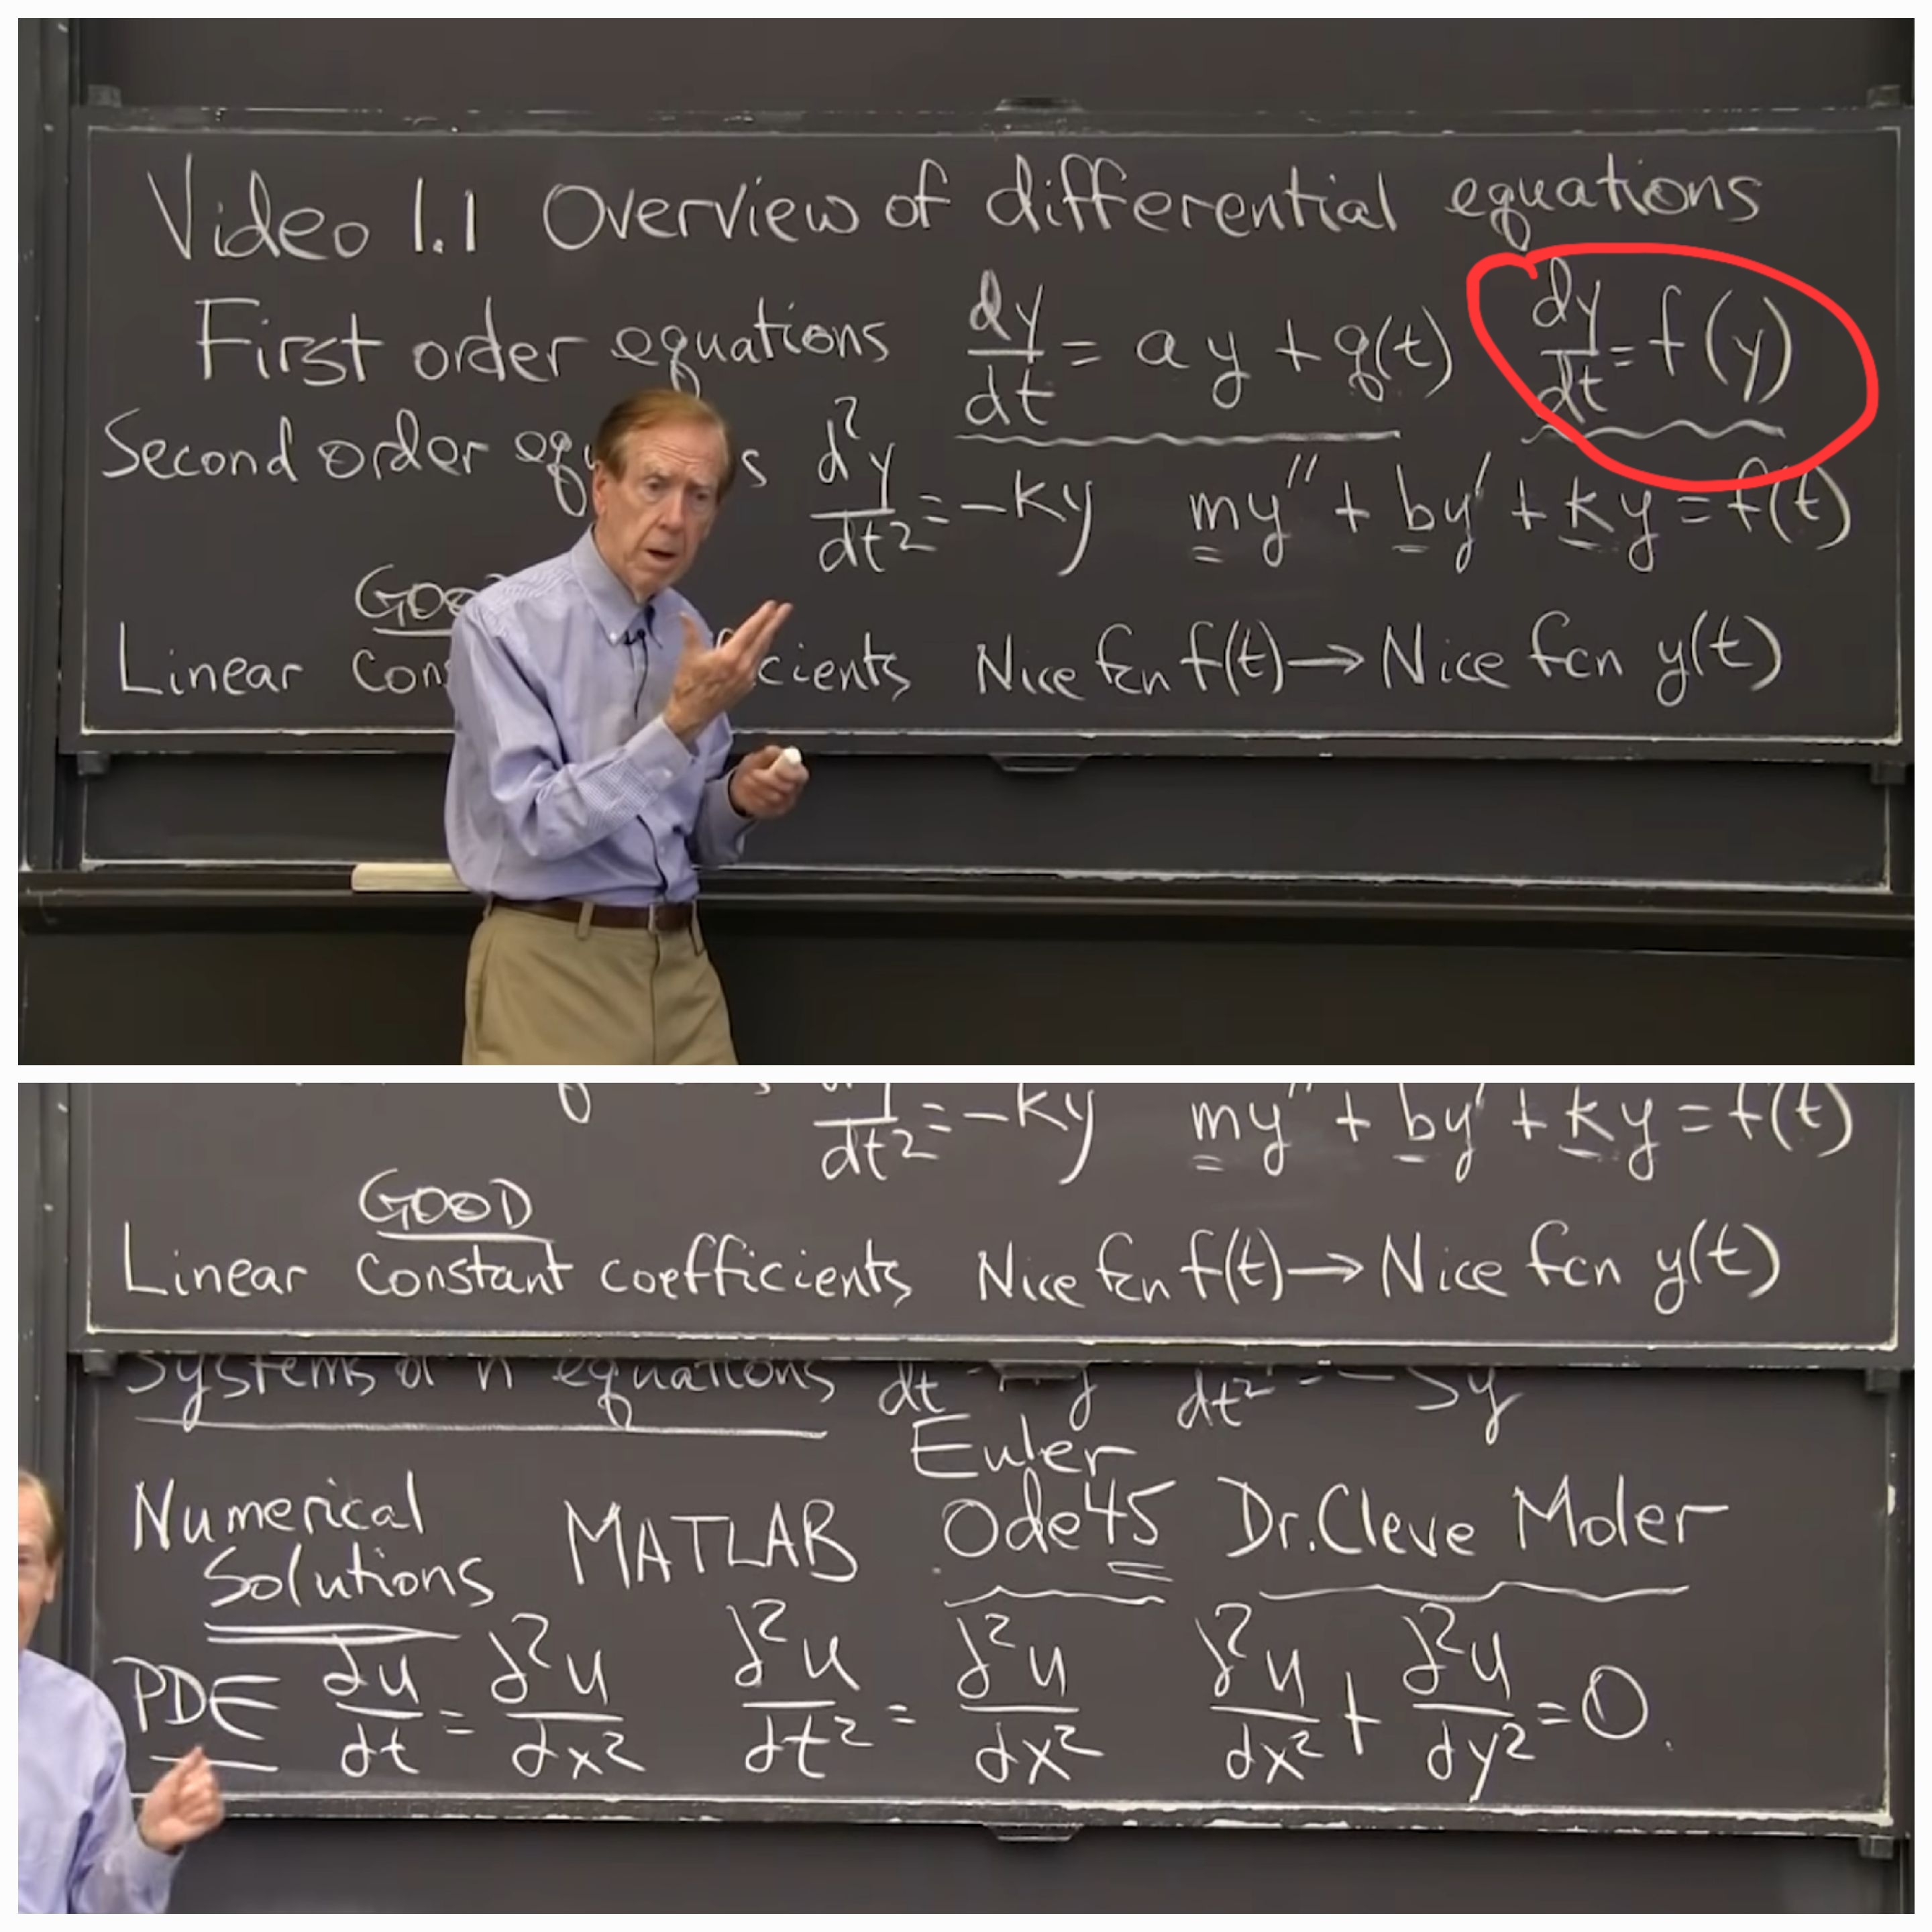 Video 1.1 Overview of differential equations
First order equations dy/dt = ay + q(t) dy/dt = f(y)
Second order s d²y/dt² = -ky my'' + by' + ky = f(t)
Linear cients Nice fcn f(t) → Nice fcn y(t)
dt² = -ky my'' + by' + ky = f(t)
GOOD
Linear constant coefficients Nice fcn f(t) → Nice fcn y(t)
Systems of n equations dt dt² = -Sy
Euler
Numerical Solutions MATLAB Ode45 Dr. Cleve Moler
PDE ∂u/∂t = ∂²u/∂x² ∂²u/∂t² = ∂²u/∂x² ∂²u/∂x² + ∂²u/∂y² = 0.